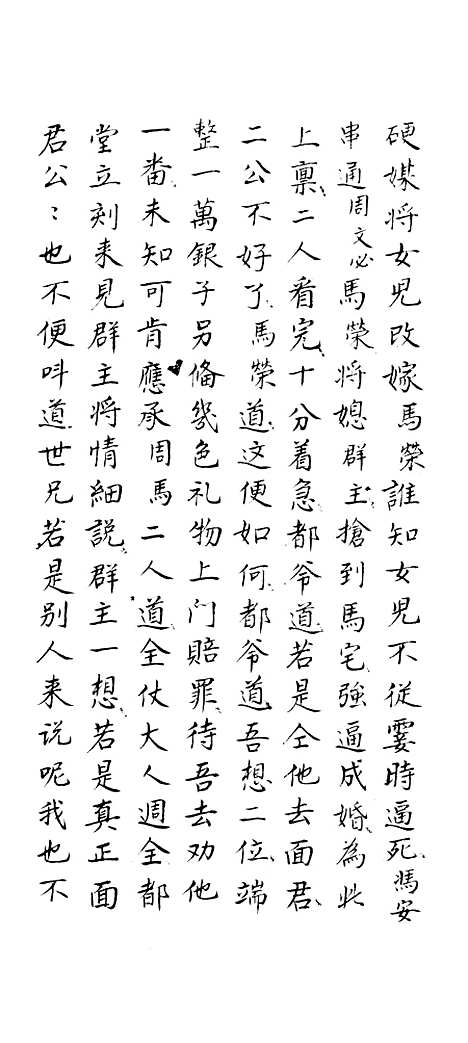 硬媒将女児改嫁馬榮誰知女児不從霎時逼死馮安
串通周文必馬榮将媳群主搶到馬宅強逼成婚為此
上禀二人看完十分着急都爷道若是仝他去面君
二公不好了馬榮道这便如何都爷道吾想二位端
整一萬銀子另俻幾色礼物上门賠罪待吾去劝他
一畨未知可肯應承周馬二人道全仗大人週全都
堂立刻来見群主将情細説群主一想若是真正面
君公〻也不便呌道世兄若是别人来说呢我也不